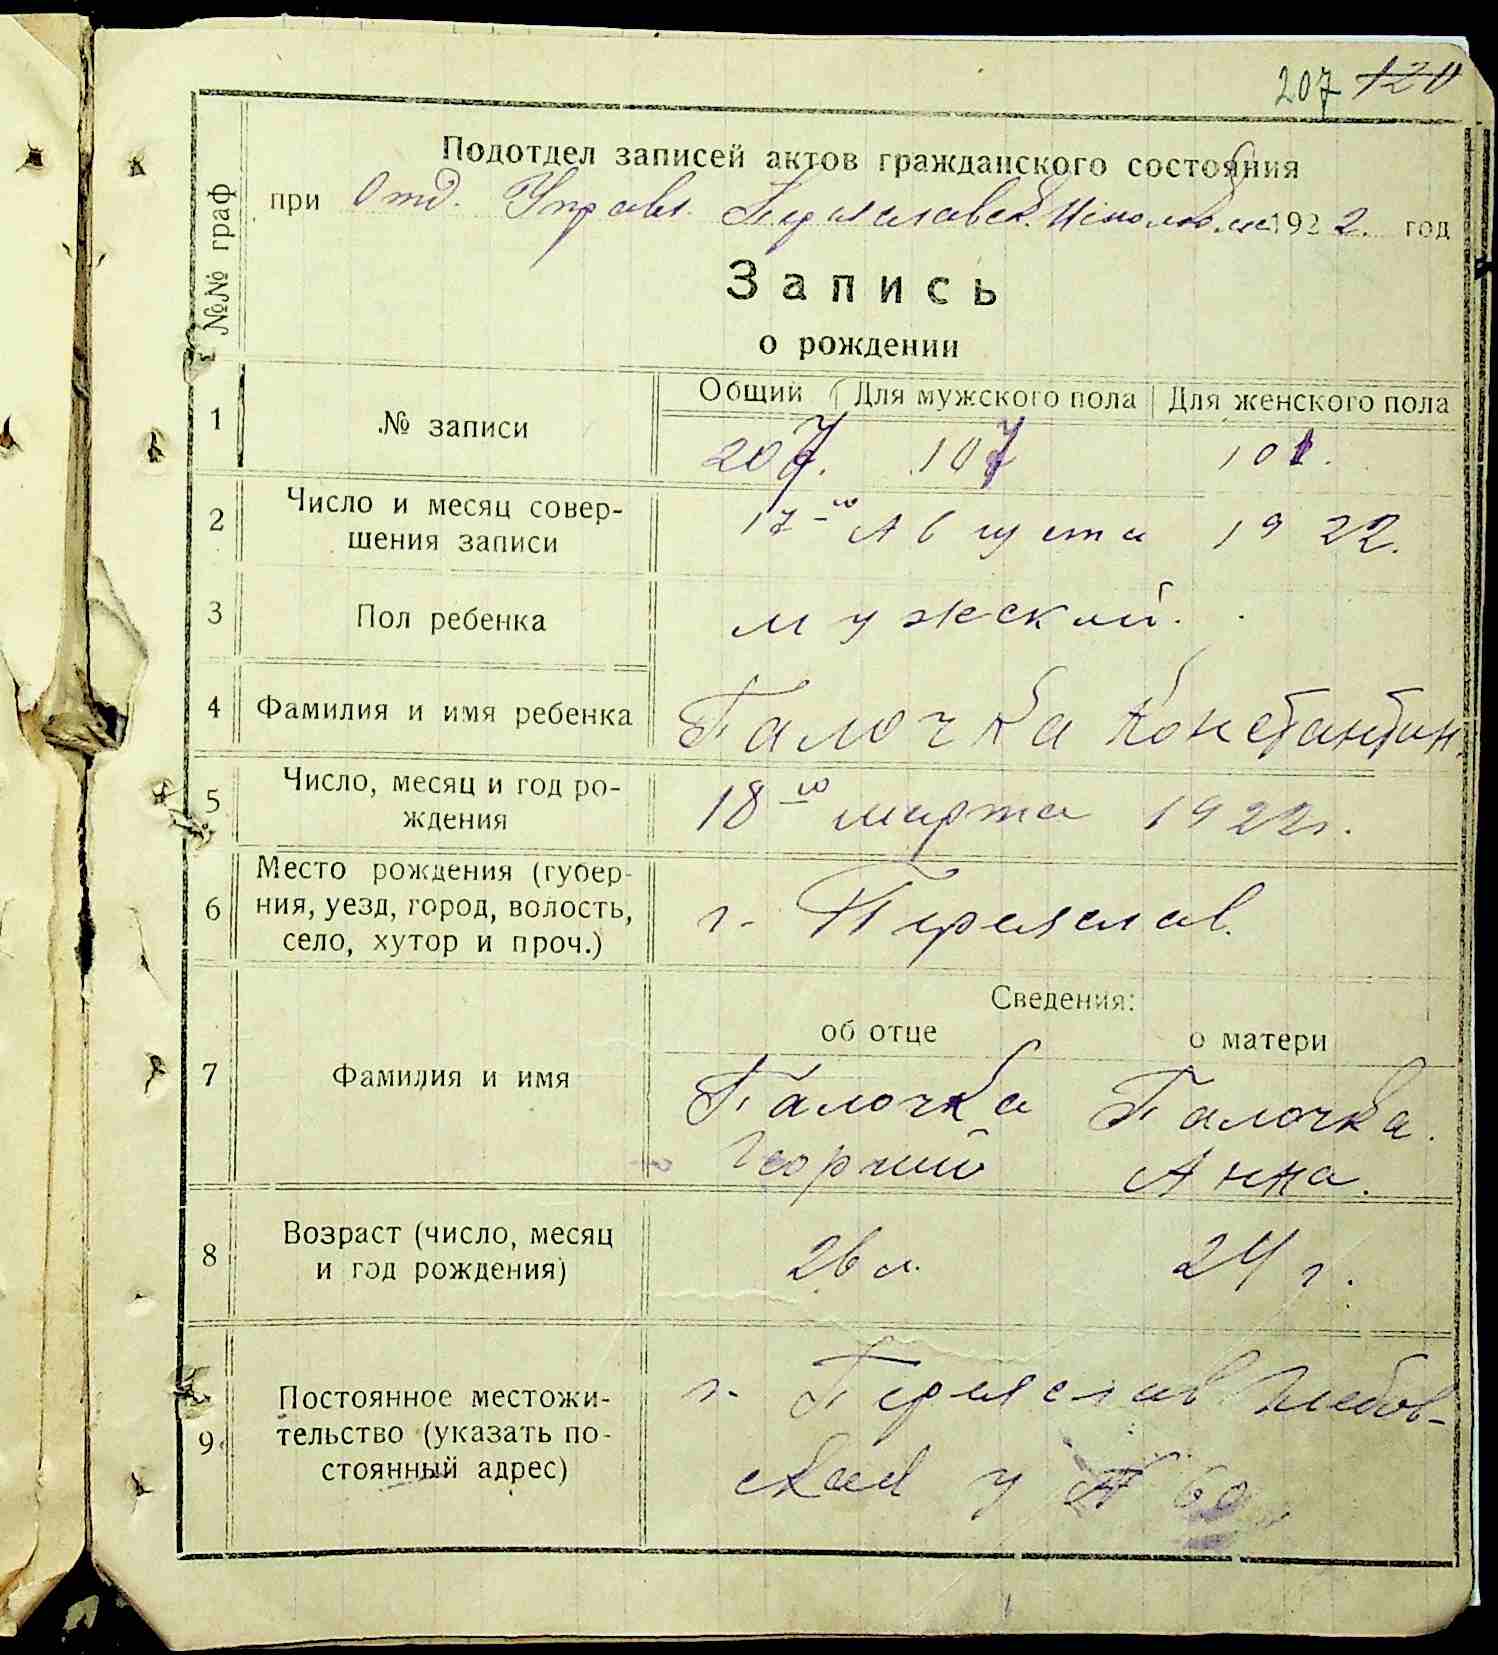 207 120
Подотдел записей актов гражданского состояния
при Отд. Управл. Переяславск. 1922. год
№№ граф
Запись
о рождении
1 № записи Общий Для мужского пола Для женского пола
207. 107 101.
2 Число и месяц совер-
шения записи
17-го Августа 1922.
3 Пол ребенка мужской.
4 Фамилия и имя ребенка Галочка Константин
5 Число, месяц и год ро-
ждения
18го марта 1922г.
6 Место рождения (губер-
ния, уезд, город, волость,
село, хутор и проч.)
г. Переяслав.
Сведения:
об отце о матери
7 Фамилия и имя
Галочка Галочка.
Георгий Анна.
8 Возраст (число, месяц
и год рождения)
26 л. 24 г.
9 Постоянное местожи-
тельство (указать по-
стоянный адрес)
г. Переяслав
ская у № 60